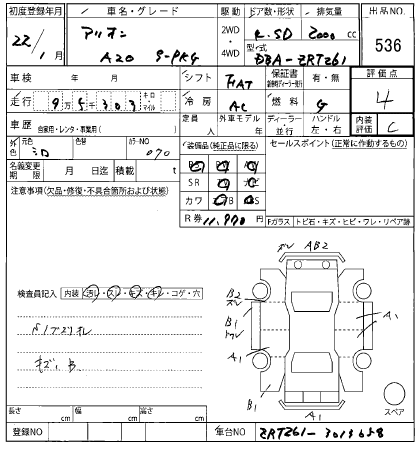 初度登録年月 車名・グレード 駆動 ドア数・形状 排気量 出品NO.
22/1月 アリオン A20 S-PKG 2WD ・ 4WD 4.SD 2000 cc 536
型式 DBA-ZRT261
車検 年 月 シフト FAT 保証書 有・無 評価点
走行 9万5千303 キロ・マイル 冷房 AC 燃料 G 4
車歴 自家用・レンタ・事業用( ) 定員 人 外車モデル 年 ディーラー・並行 ハンドル 左・右 内装評価 C
外色 元色 色替 カラーNO 070
装備品(純正品に限る) セールスポイント (正常に作動するもの)
名義変更期限 月 日迄 積載 t
SR
注意事項(欠品・修復・不具合箇所および状態)
カワ
R券 11,970
Fガラス トビ石・キズ・ヒビ・ワレ・リペア跡
ズレ AB2
検査員記入 内装 汚レ・スレ・キズ・キレ・コゲ・穴
B2
B1
A1
A1
キズ、B
B1
A1
スペア
長さ cm 幅 cm 高さ cm
登録NO 車台NO ZRT261-3019658